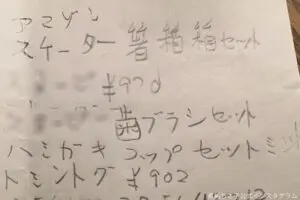 アマゾン
スケーター 箸箱箱セット
¥970
歯ブラシセット
ハミガキ コップ セット ミッ
トミントグ ¥902
公式インスタグラム